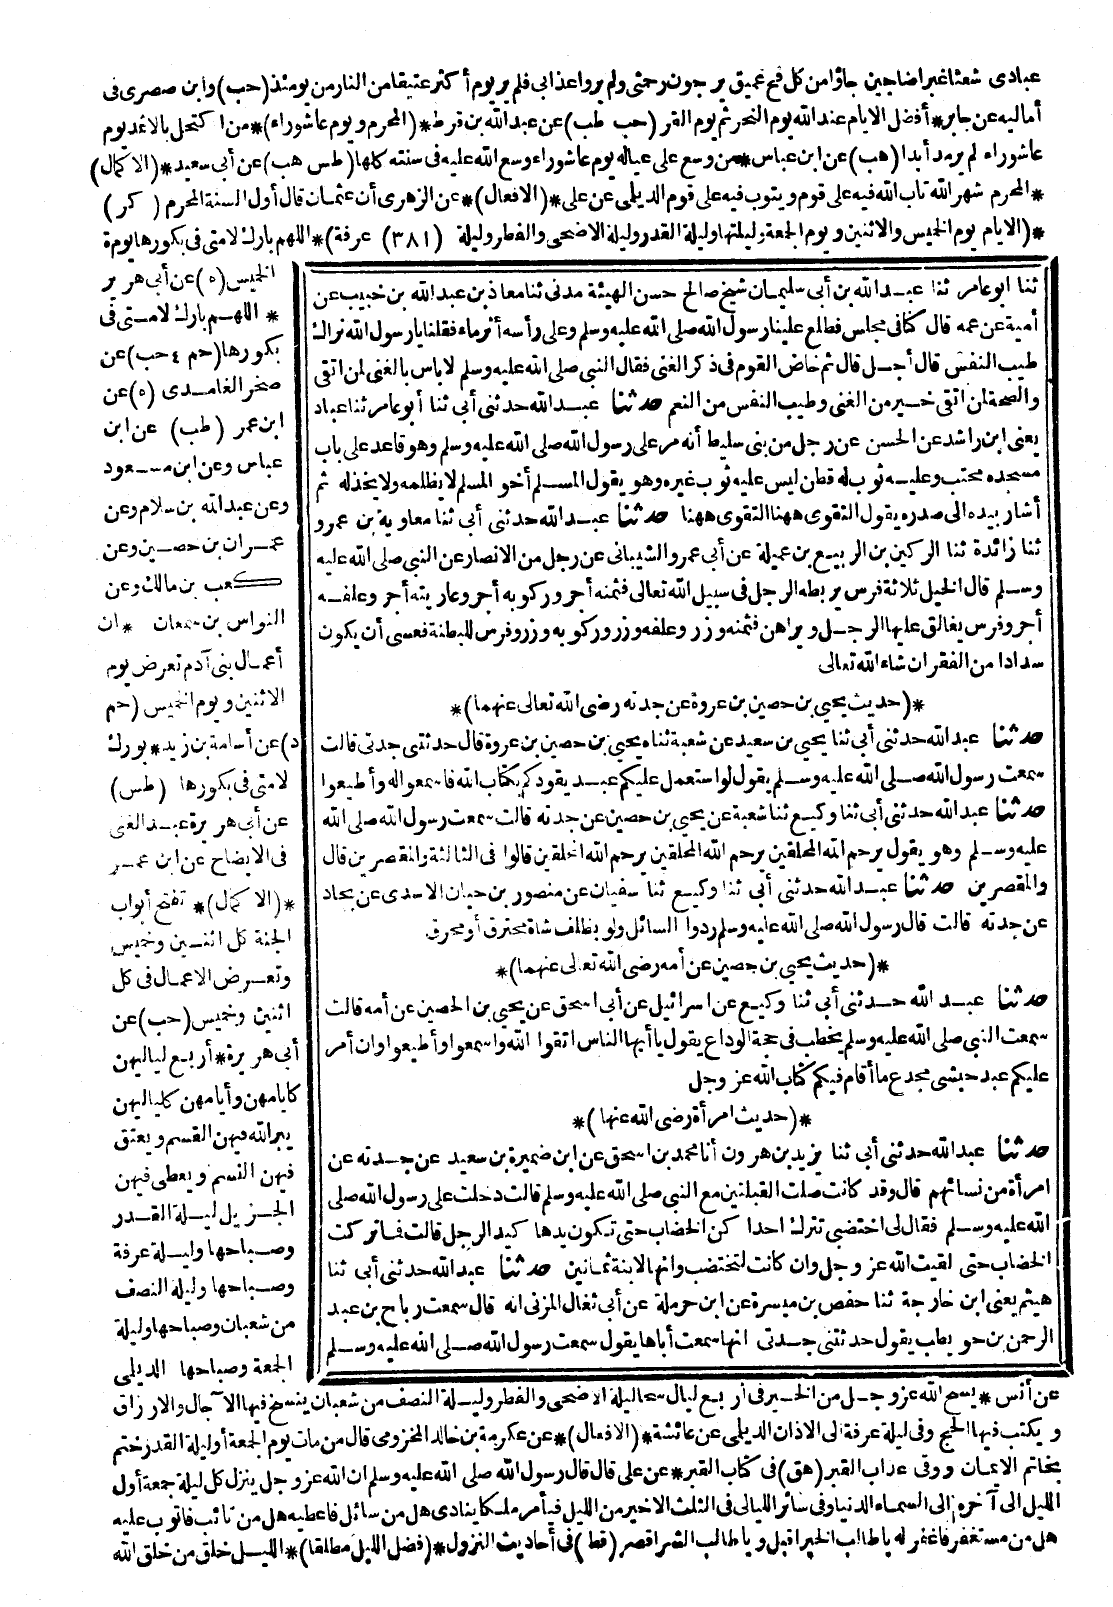 عبادى شعثا غبرا ضاجين جاؤا من كل فج عميق يرجون رحمتى ولم يروا عذابى فلم ير يوم أكثر عتيقا من النار من يومئذ (حب) وابن صصرى فى
أماليه عن جابر * أفضل الايام عند الله يوم النحر ثم يوم القر (حب طب) عن عبد الله بن قرط * (المحرم ويوم عاشوراء) * من اكتحل بالاثمد يوم
عاشوراء لم يرمد أبدا (هب) عن ابن عباس * من وسع على عياله يوم عاشوراء وسع الله عليه فى سنته كلها (طس هب) عن أبى سعيد * (الاكمال)
* المحرم شهر الله تاب الله فيه على قوم ويتوب فيه على قوم الديلى عن على * (الافعال) * عن الزهرى أن عثمان قال أول السنة المحرم (كر)
* (الايام يوم الخميس والاثنين ويوم الجمعة وليلتها وليلة القدر وليلة الاضحى والفطر وليلة (٣٨١) عرفة) * اللهم بارك لامتى فى بكورها يوم ة
الخميس (ه) عن أبى هرير
* اللهم بارك لامتى فى
بكورها (حم ٤ حب) عن
صخر الغامدى (ه) عن
ابن عمر (طب) عن ابن
عباس وعن ابن مسعود
وعن عبد الله بن سلام وعن
عمران بن حصين وعن
كعب بن مالك وعن
النواس بن سمعان * ان
أعمال بنى آدم تعرض يوم
الاثنين ويوم الخميس (حم
د) عن أسامة بن زيد * بورك
لامتى فى بكورها (طس)
عن أبى هريرة عبد الغنى
فى الايضاح عن ابن عمر
* (الاكمال) * تفتح أبواب
الجنة كل اثنين وخميس
وتعرض الاعمال فى كل
اثنين وخميس (حب) عن
أبى هريرة * أربع لياليهن
كايامهن وأيامهن كلياليهن
يبر الله فيهن القسم ويعتق
فيهن النسم ويعطى فيهن
الجزيل ليلة القدر
وصباحها وليلة عرفة
وصباحها وليلة النصف
من شعبان وصباحها وليلة
الجمعة وصباحها الديلى
ثنا ابو عامر ثنا عبد الله بن أبى سليمان شيخ صالح حسن الهيئة مدنى ثنا معاذ بن عبد الله بن خبيب عن
أمية عن عمه قال كنا فى مجلس فطلع علينا رسول الله صلى الله عليه وسلم وعلى رأسه أثر ماء فقلنا يا رسول الله نراك
طيب النفس قال أجل قال ثم خاض القوم فى ذكر الغنى فقال النبى صلى الله عليه وسلم لا باس بالغنى لمن اتقى
والصحة لمن اتقى خير من الغنى وطيب النفس من النعم حدثنا عبد الله حدثنى أبى ثنا أبو عامر ثنا عباد
يعنى ابن راشد عن الحسن عن رجل من بنى سليط أنه مر على رسول الله صلى الله عليه وسلم وهو قاعد على باب
مسجده محتب وعليه ثوب له قطن ليس عليه ثوب غيره وهو يقول المسلم أخو المسلم لا يظلمه ولا يخذله ثم
أشار بيده الى صدره يقول التقوى ههنا التقوى ههنا حدثنا عبد الله حدثنى أبى ثنا معاوية بن عمرو
ثنا زائدة ثنا الركين بن الربيع بن عميلة عن أبى عمرو الشيبانى عن رجل من الانصار عن النبى صلى الله عليه
وسلم قال الخيل ثلاثة فرس يربطه الرجل فى سبيل الله تعالى فثمنه أجر وركوبه أجر وعاريته أجر وعلفه
أجر وفرس يغالق عليها الرجل ويراهن فثمنه وزر وعلفه وزر وركوبه وزر وفرس للبطنة فعسى أن يكون
سدادا من الفقر ان شاء الله تعالى
* (حديث يحيى بن حصين بن عروة عن جدته رضى الله تعالى عنهما) *
حدثنا عبد الله حدثنى أبى ثنا يحيى بن سعيد عن شعبة ثناه يحيى بن حصين بن عروة قال حدثتنى جدتى قالت
سمعت رسول الله صلى الله عليه وسلم يقول لو استعمل عليكم عبد يقودكم بكتاب الله فاسمعوا له وأطيعوا
حدثنا عبد الله حدثنى أبى ثنا وكيع ثنا شعبة عن يحيى بن حصين عن جدته قالت سمعت رسول الله صلى الله
عليه وسلم وهو يقول يرحم الله المحلقين يرحم الله المحلقين يرحم الله المحلقين قالوا فى الثالثة والمقصرين قال
والمقصرين حدثنا عبد الله حدثنى أبى ثنا وكيع ثنا سفيان عن منصور بن حيان الاسدى عن بجاد
عن جدته قالت قال رسول الله صلى الله عليه وسلم ردوا السائل ولو بظلف شاة محترق أو محرق
* (حديث يحيى بن حصين عن أمه رضى الله تعالى عنهما) *
حدثنا عبد الله حدثنى أبى ثنا وكيع عن اسرائيل عن أبى اسحق عن يحيى بن الحصين عن أمه قالت
سمعت النبى صلى الله عليه وسلم يخطب فى حجة الوداع يقول يا أيها الناس اتقوا الله واسمعوا وأطيعوا وان أمر
عليكم عبد حبشى مجدع ما أقام فيكم كتاب الله عز وجل
* (حديث امرأة رضى الله عنها) *
حدثنا عبد الله حدثنى أبى ثنا يزيد بن هرون أنا محمد بن اسحق عن ابن ضميرة بن سعيد عن جدته عن
امرأة من نسائهم قال وقد كانت صلت القبلتين مع النبى صلى الله عليه وسلم قالت دخلت على رسول الله صلى
الله عليه وسلم فقال لى اختضبى تترك احدا كن الخضاب حتى تكون يدها كيد الرجل قالت فما تركت
الخضاب حتى لقيت الله عز وجل وان كانت لتختضب وانها لابنة ثمانين حدثنا عبد الله حدثنى أبى ثنا
هيثم يعنى ابن خارجة ثنا حفص بن ميسرة عن ابن حرملة عن أبى ثفال المزنى انه قال سمعت رباح بن عبد
الرحمن بن حويطب يقول حدثتنى جدتى انها سمعت أباها يقول سمعت رسول الله صلى الله عليه وسلم
عن أنس * يسح الله عز وجل من الخير فى أربع ليال سحا ليلة الاضحى والفطر وليلة النصف من شعبان ينسخ فيها الآجال والارزاق
ويكتب فيها الحج وفى ليلة عرفة الى الاذان الديلى عن عائشة * (الافعال) * عن عكرمة بن خالد المخزومى قال من مات يوم الجمعة أو ليلة القدر ختم
بخاتم الايمان ووقى عذاب القبر (هق) فى كتاب القبر * عن على قال قال رسول الله صلى الله عليه وسلم ان الله عز وجل ينزل كل ليلة جمعة أول
الليل الى آخره الى السماء الدنيا وفى سائر الليالى فى الثلث الاخير من الليل فيأمر ملكا ينادى هل من سائل فاعطيه هل من تائب فاتوب عليه
هل من مستغفر فاغفر له يا طالب الخير اقبل ويا طالب الشر اقصر (قط) فى أحاديث النزول * (فضل الليل مطلقا) * الليل خلق من خلق الله